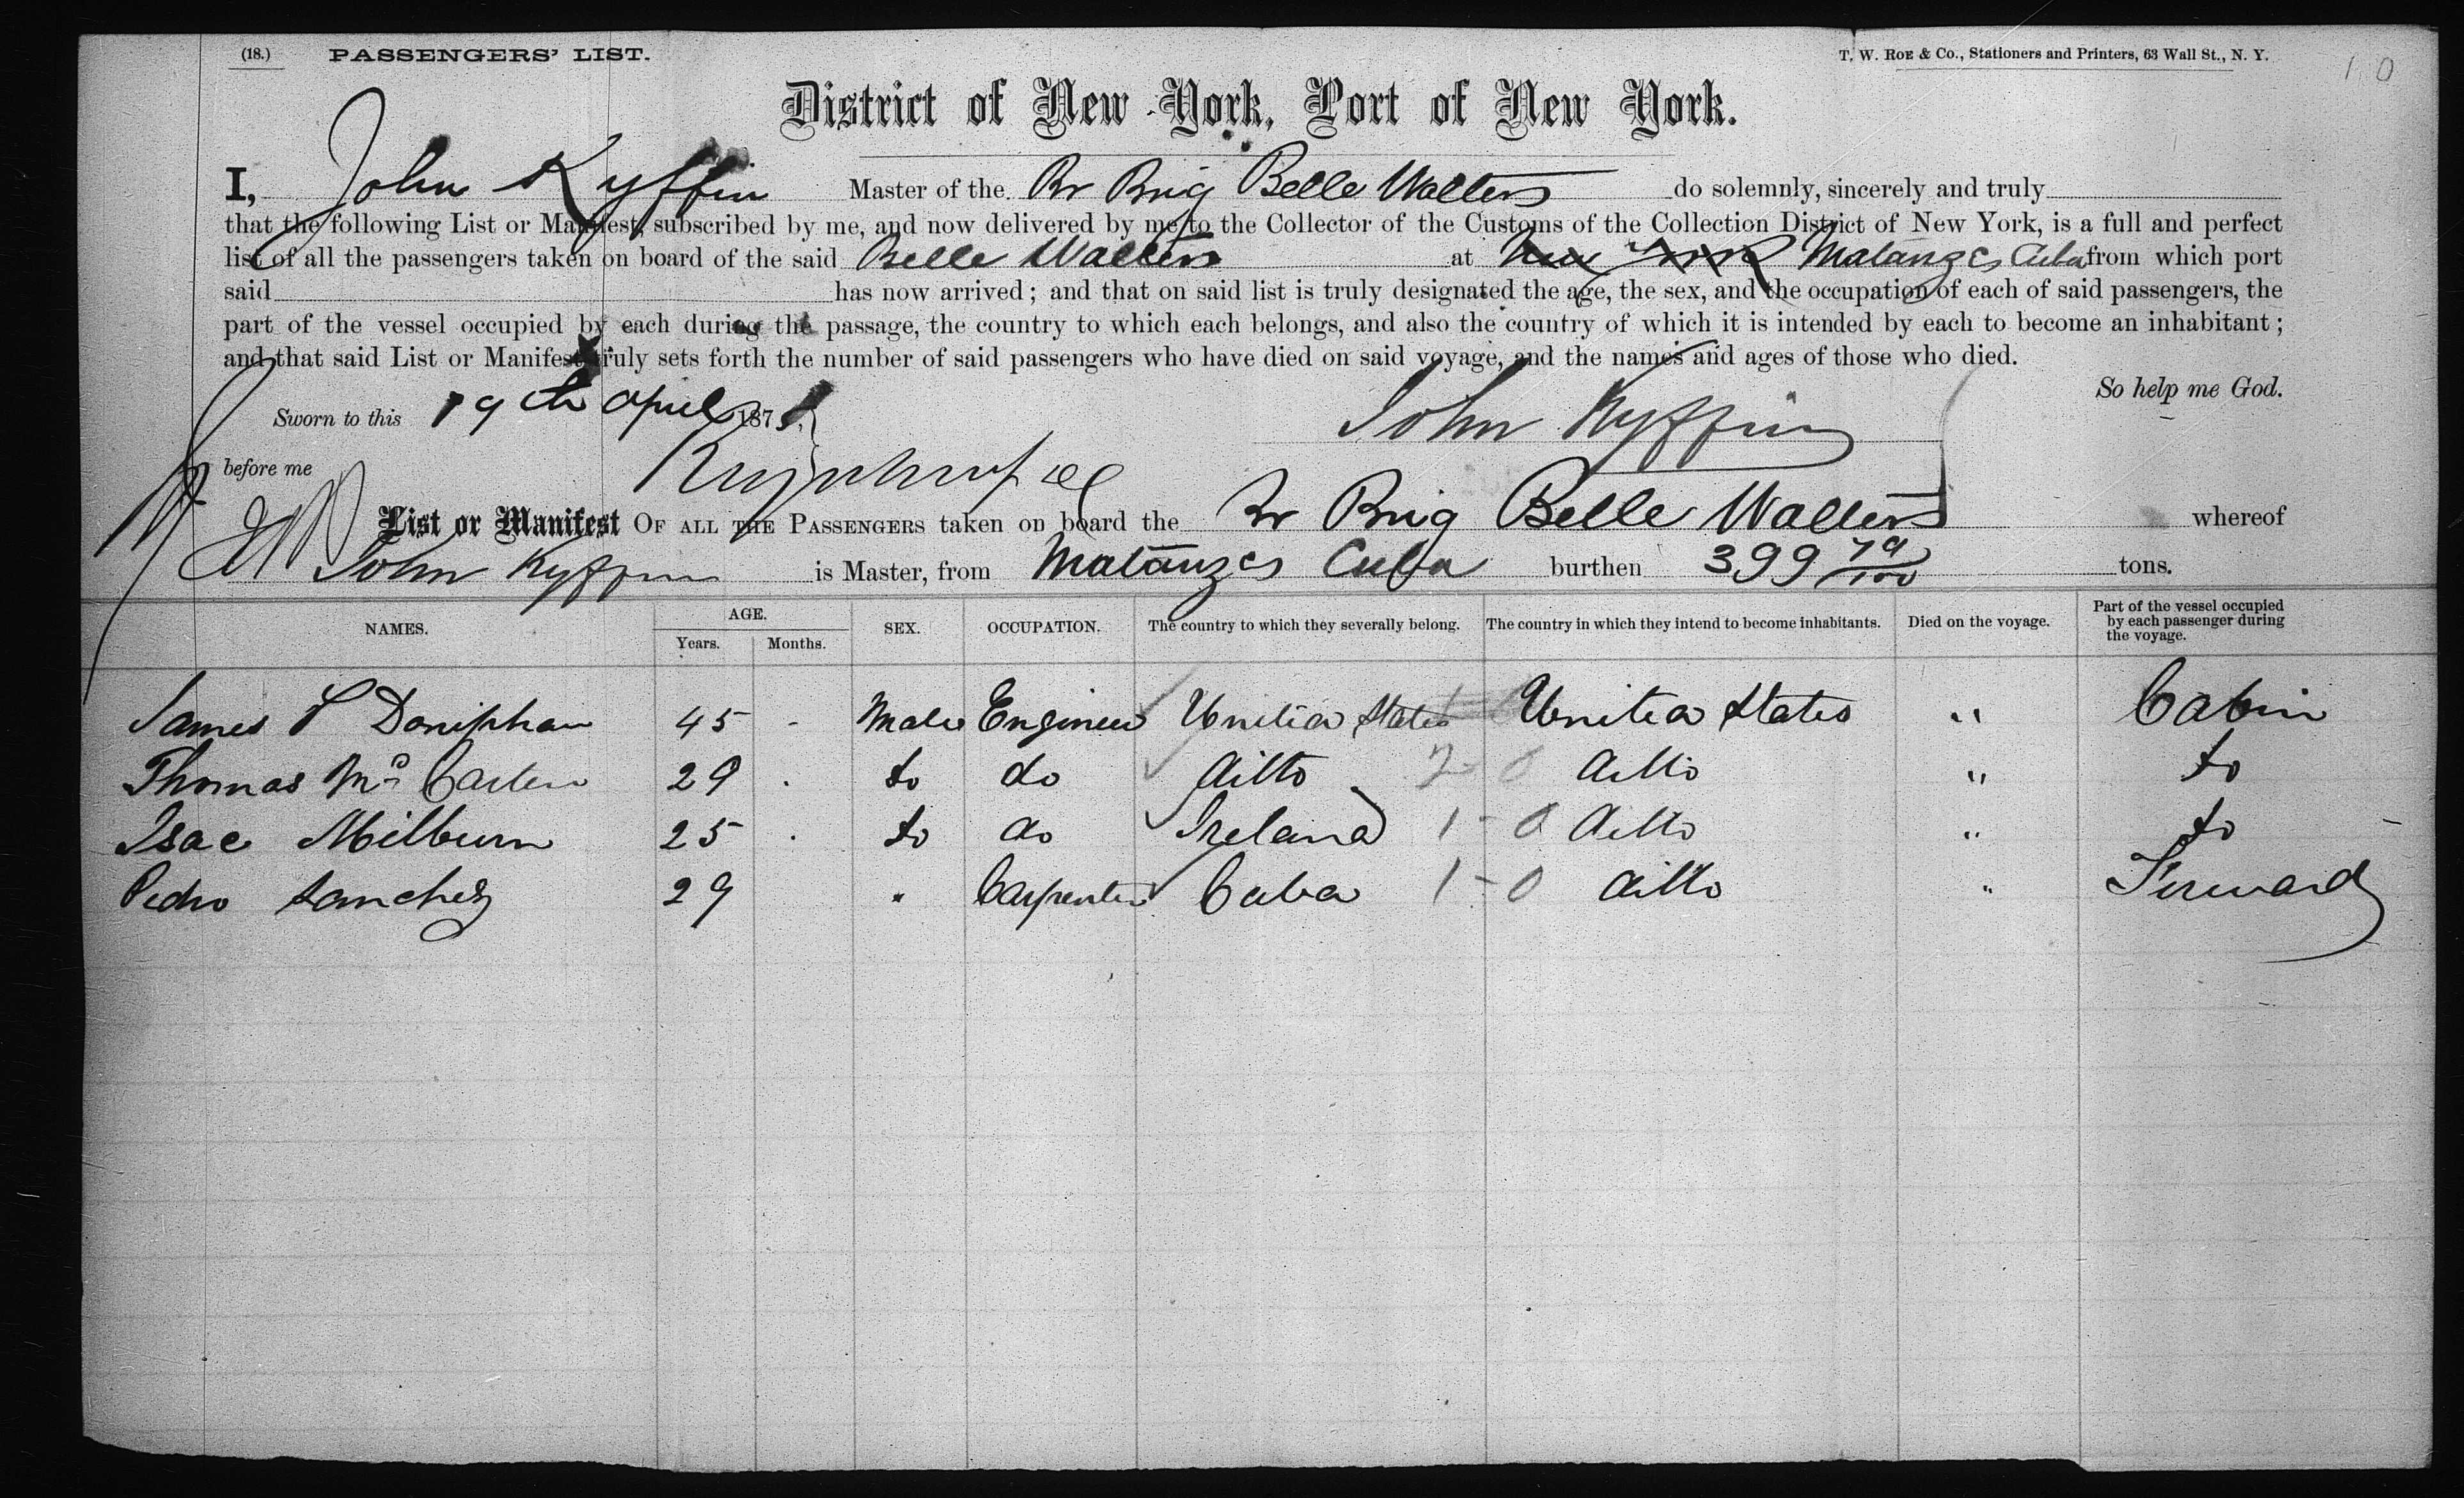 (18.) PASSENGERS' LIST. T. W. ROE & Co., Stationers and Printers, 63 Wall St., N. Y.
District of New York, Port of New York.
I, John Kyffin Master of the Br Brig Belle Walters do solemnly, sincerely and truly
that the following List or Manifest, subscribed by me, and now delivered by me to the Collector of the Customs of the Collection District of New York, is a full and perfect
list of all the passengers taken on board of the said Belle Walters at New York Matanzes Cuba from which port
said has now arrived; and that on said list is truly designated the age, the sex, and the occupation of each of said passengers, the
part of the vessel occupied by each during the passage, the country to which each belongs, and also the country of which it is intended by each to become an inhabitant;
and that said List or Manifest truly sets forth the number of said passengers who have died on said voyage, and the names and ages of those who died.
So help me God.
Sworn to this 19th April 187
John Kyffin
before me
List or Manifest OF ALL THE PASSENGERS taken on board the Br Brig Belle Walters whereof
John Kyffin is Master, from Matanzes Cuba burthen 399 79/100 tons.
NAMES. AGE. Years. Months. SEX. OCCUPATION. The country to which they severally belong. The country in which they intend to become inhabitants. Died on the voyage. Part of the vessel occupied by each passenger during the voyage.
James Doniphan 45 - Male Engineer United States United States " Cabin
Thomas 29 . do do ditto 2 0 ditto " do
Isac Milburn 25 . do do Ireland 1 - 0 ditto " do
Pedro Sanchez 29 " Carpenter Cuba 1 - 0 ditto " Forward